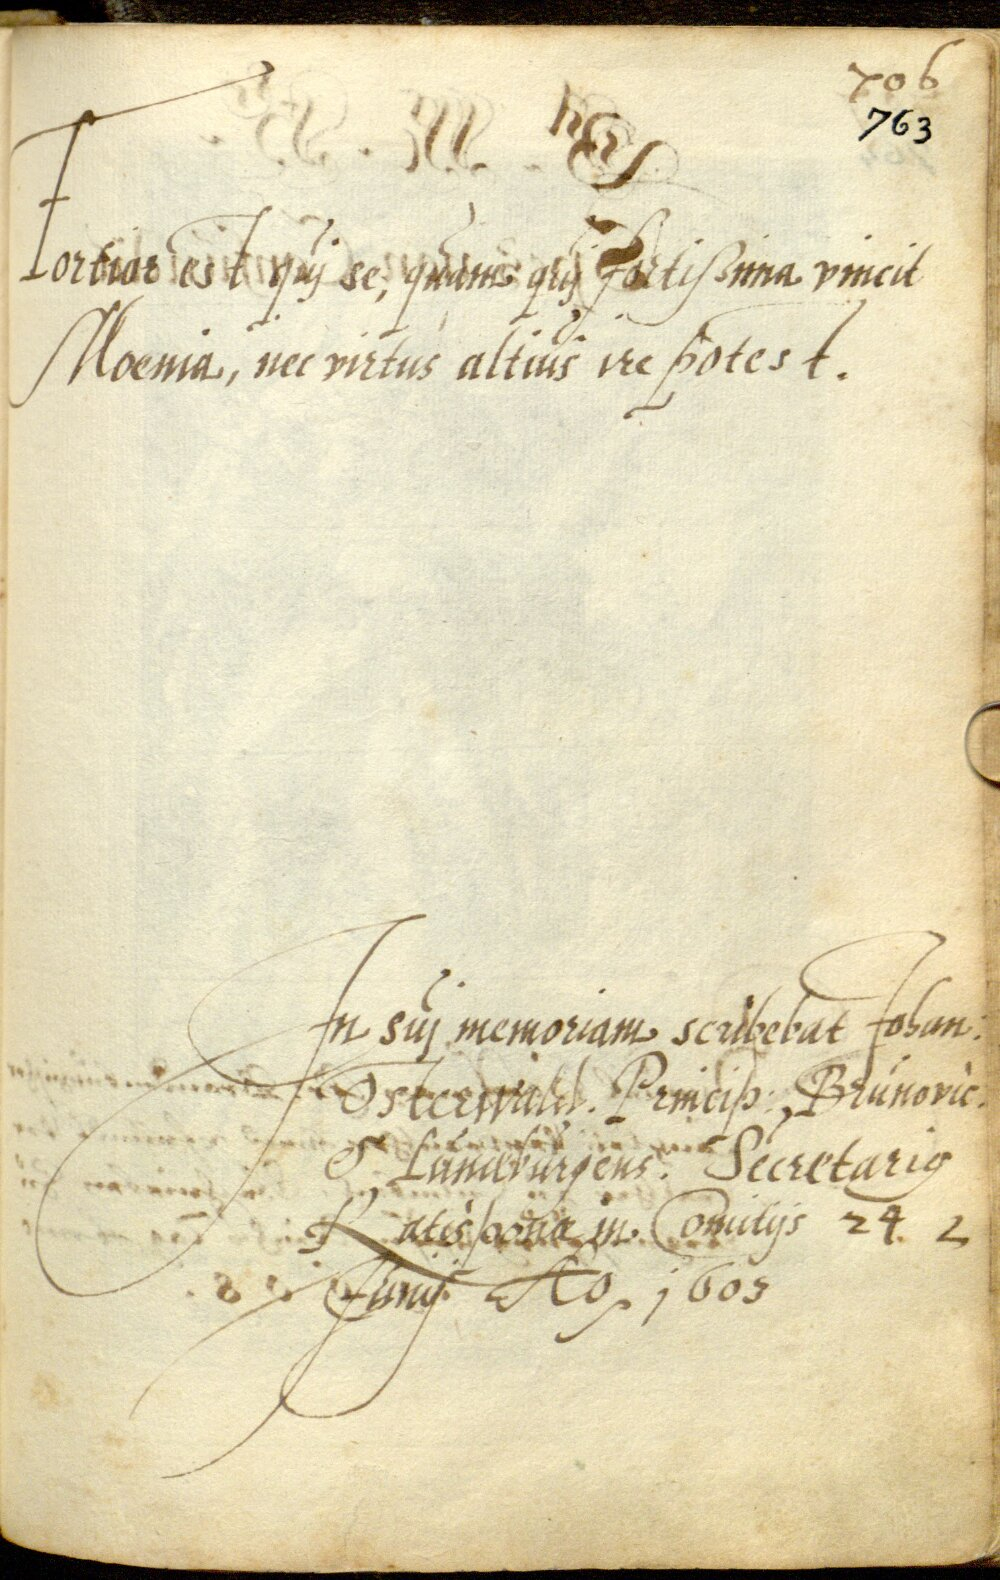 706
763
Fortior est quj se, quam quj fortissima vincit
Moenia, nec virtus altius ire potest.
In suj memoriam scribebat Johan:
Osterwald. Princip: Brunovic.
& Lunæburgens. Secretarig
Ratisponæ in Comitijs 24
Junij Ao 1603